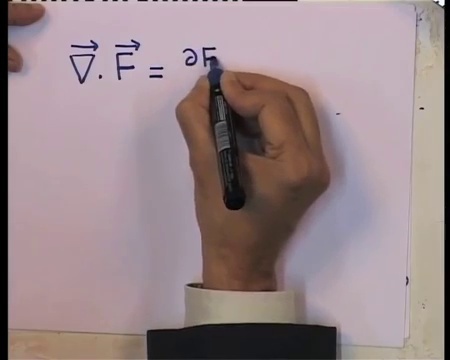 $\vec{\nabla} \cdot \vec{F} = \partial F$